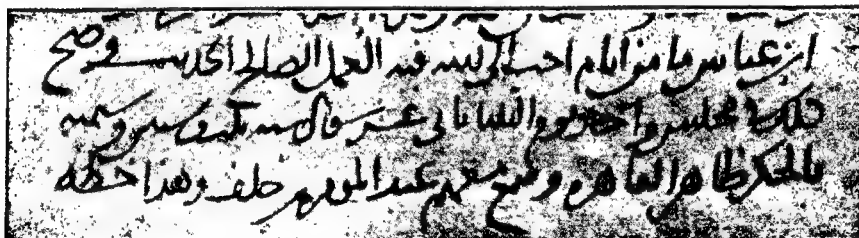 ابن عباس ما من ايام احب الى الله فيه العمل الصالح الحديث وصح
ذلك في مجلس واحد يوم الثلثا ثاني عشر شوال سنه وستين وستميه
بالحكر ظاهر القاهره وسمع معهم عبد المومن بن خلف وهذا خطه